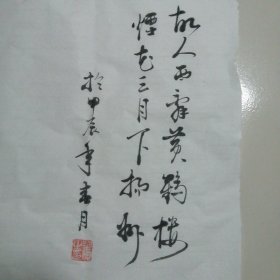 故人西辞黄鹤楼
烟花三月下扬州
于甲辰年春月